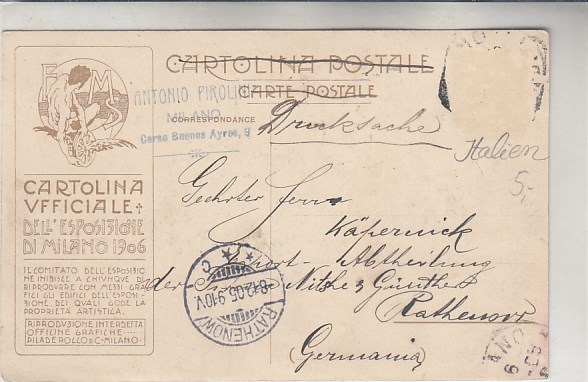 CARTOLINA POSTALE
CARTE POSTALE
CORRESPONDANCE
ANTONIO PIROLI
MILANO
Corso Buenos Ayres, 9
Drucksache
Italien
5,-
F M S
CARTOLINA
VFFICIALE
DELL'ESPOSIZIONE
DI MILANO 1906
IL COMITATO DELL'ESPOSIZIO
NE INIBISCE A CHIVNQVE DI
RIPRODVRRE CON MEZZI GRA
FICI GLI EDIFICI DELL'ESPOSI-
ZIONE, DEI QVALI GODE LA
PROPRIETÀ ARTISTICA.
RIPRODVZIONE INTERDETTA
OFFICINE GRAFICHE
PILADE ROLLO & C-MILANO-
Geehrter Herrn
Käpernick
Export-Abtheilung
der Firma Nitsche & Günther
Rathenow
(Germania)
RATHENOW
8.12.05.9-10V.
C